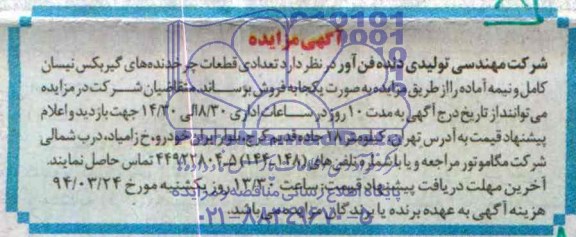 آگهی مزایده
شرکت مهندسی تولیدی دنده فن آور در نظر دارد تعدادی قطعات چرخدنده‌های گیربکس نیسان
کامل و نیمه آماده را از طریق مزایده به صورت یکجا به فروش برساند. متقاضیان شرکت در مزایده
می‌توانند از تاریخ درج آگهی به مدت ۱۰ روز در ساعات اداری ۸/۳۰ الی ۱۴/۳۰ جهت بازدید و اعلام
پیشنهاد قیمت به آدرس تهران، کیلومتر ۱۸ جاده قدیم کرج، بلوار ایران خودرو، خ زامیاد، درب شمالی
شرکت مگاموتور مراجعه و یا با شماره تلفن های (۱۴۸-۱۴۴) ۵-۴۴۹۲۲۸۰۴ تماس حاصل نمایند.
آخرین مهلت دریافت پیشنهاد قیمت: ساعت ۱۳/۳۰ روز یکشنبه مورخ ۹۴/۰۳/۲۴
هزینه آگهی به عهده برنده یا برندگان مزایده می باشد.
پایگاه اطلاع رسانی مناقصه و مزایده